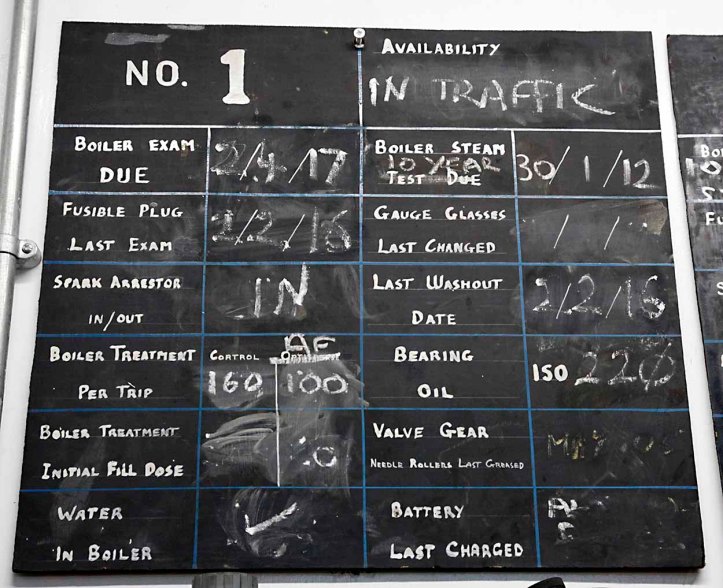 NO. 1
AVAILABILITY
IN TRAFFIC
BOILER EXAM
DUE
2/4/17
BOILER STEAM
10 YEAR
TEST DUE
30/1/12
FUSIBLE PLUG
LAST EXAM
2/2/16
GAUGE GLASSES
LAST CHANGED
/ /
SPARK ARRESTOR
IN/OUT
IN
LAST WASHOUT
DATE
2/2/16
BOILER TREATMENT
PER TRIP
CONTROL
160
AF
100
BEARING
OIL
ISO 220
BOILER TREATMENT
INITIAL FILL DOSE
VALVE GEAR
NEEDLE ROLLERS LAST GREASED
WATER
IN BOILER
✓
BATTERY
LAST CHARGED